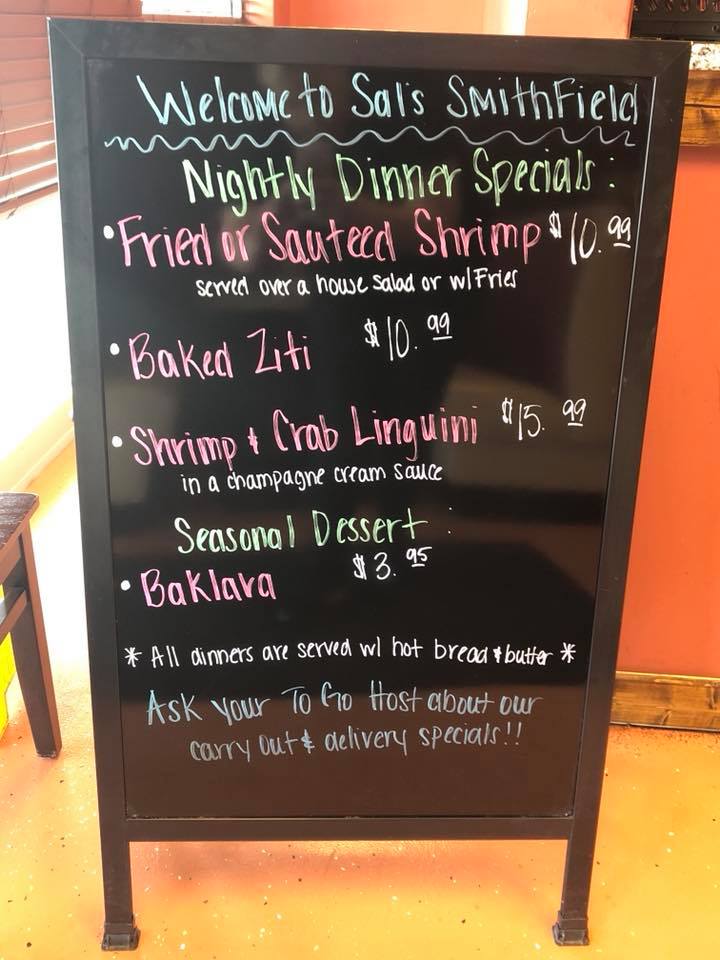 Welcome to Sal's Smithfield
Nightly Dinner Specials:
• Fried or Sauteed Shrimp $10.99
served over a house salad or w/ Fries
• Baked Ziti $10.99
• Shrimp & Crab Linguini $15.99
in a champagne cream sauce
Seasonal Dessert:
• Baklava $3.95
* All dinners are served w/ hot bread & butter *
Ask your To Go Host about our
carry out & delivery specials!!